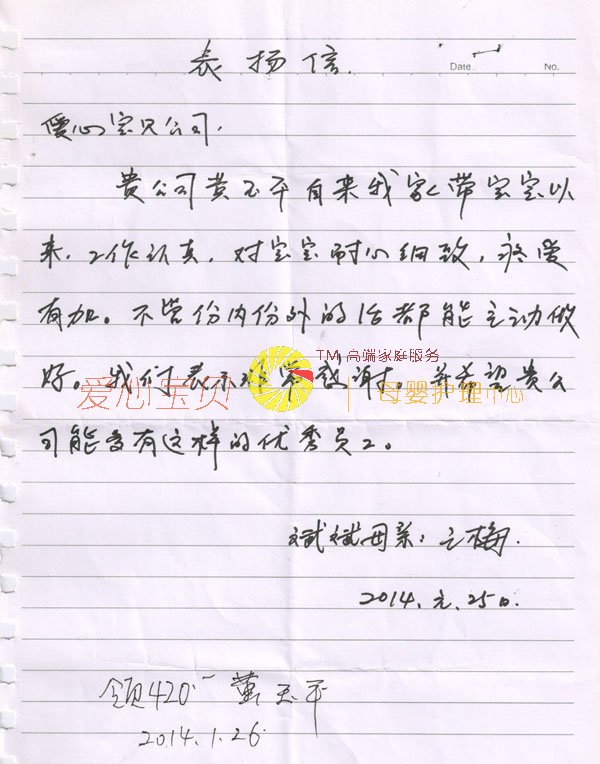 表扬信.
Date
No.
爱心宝贝公司.
贵公司黄玉平自来我家带宝宝以
来,工作认真,对宝宝耐心细致,疼爱
有加。不管份内份外的活都能主动做
TM 高端家庭服务
好。我们表示非常感谢。并希望贵公
爱心宝贝 母婴护理中心
司能多有这样的优秀员工。
斌斌母亲:王梅.
2014.元.25日.
领420
2014.1.26